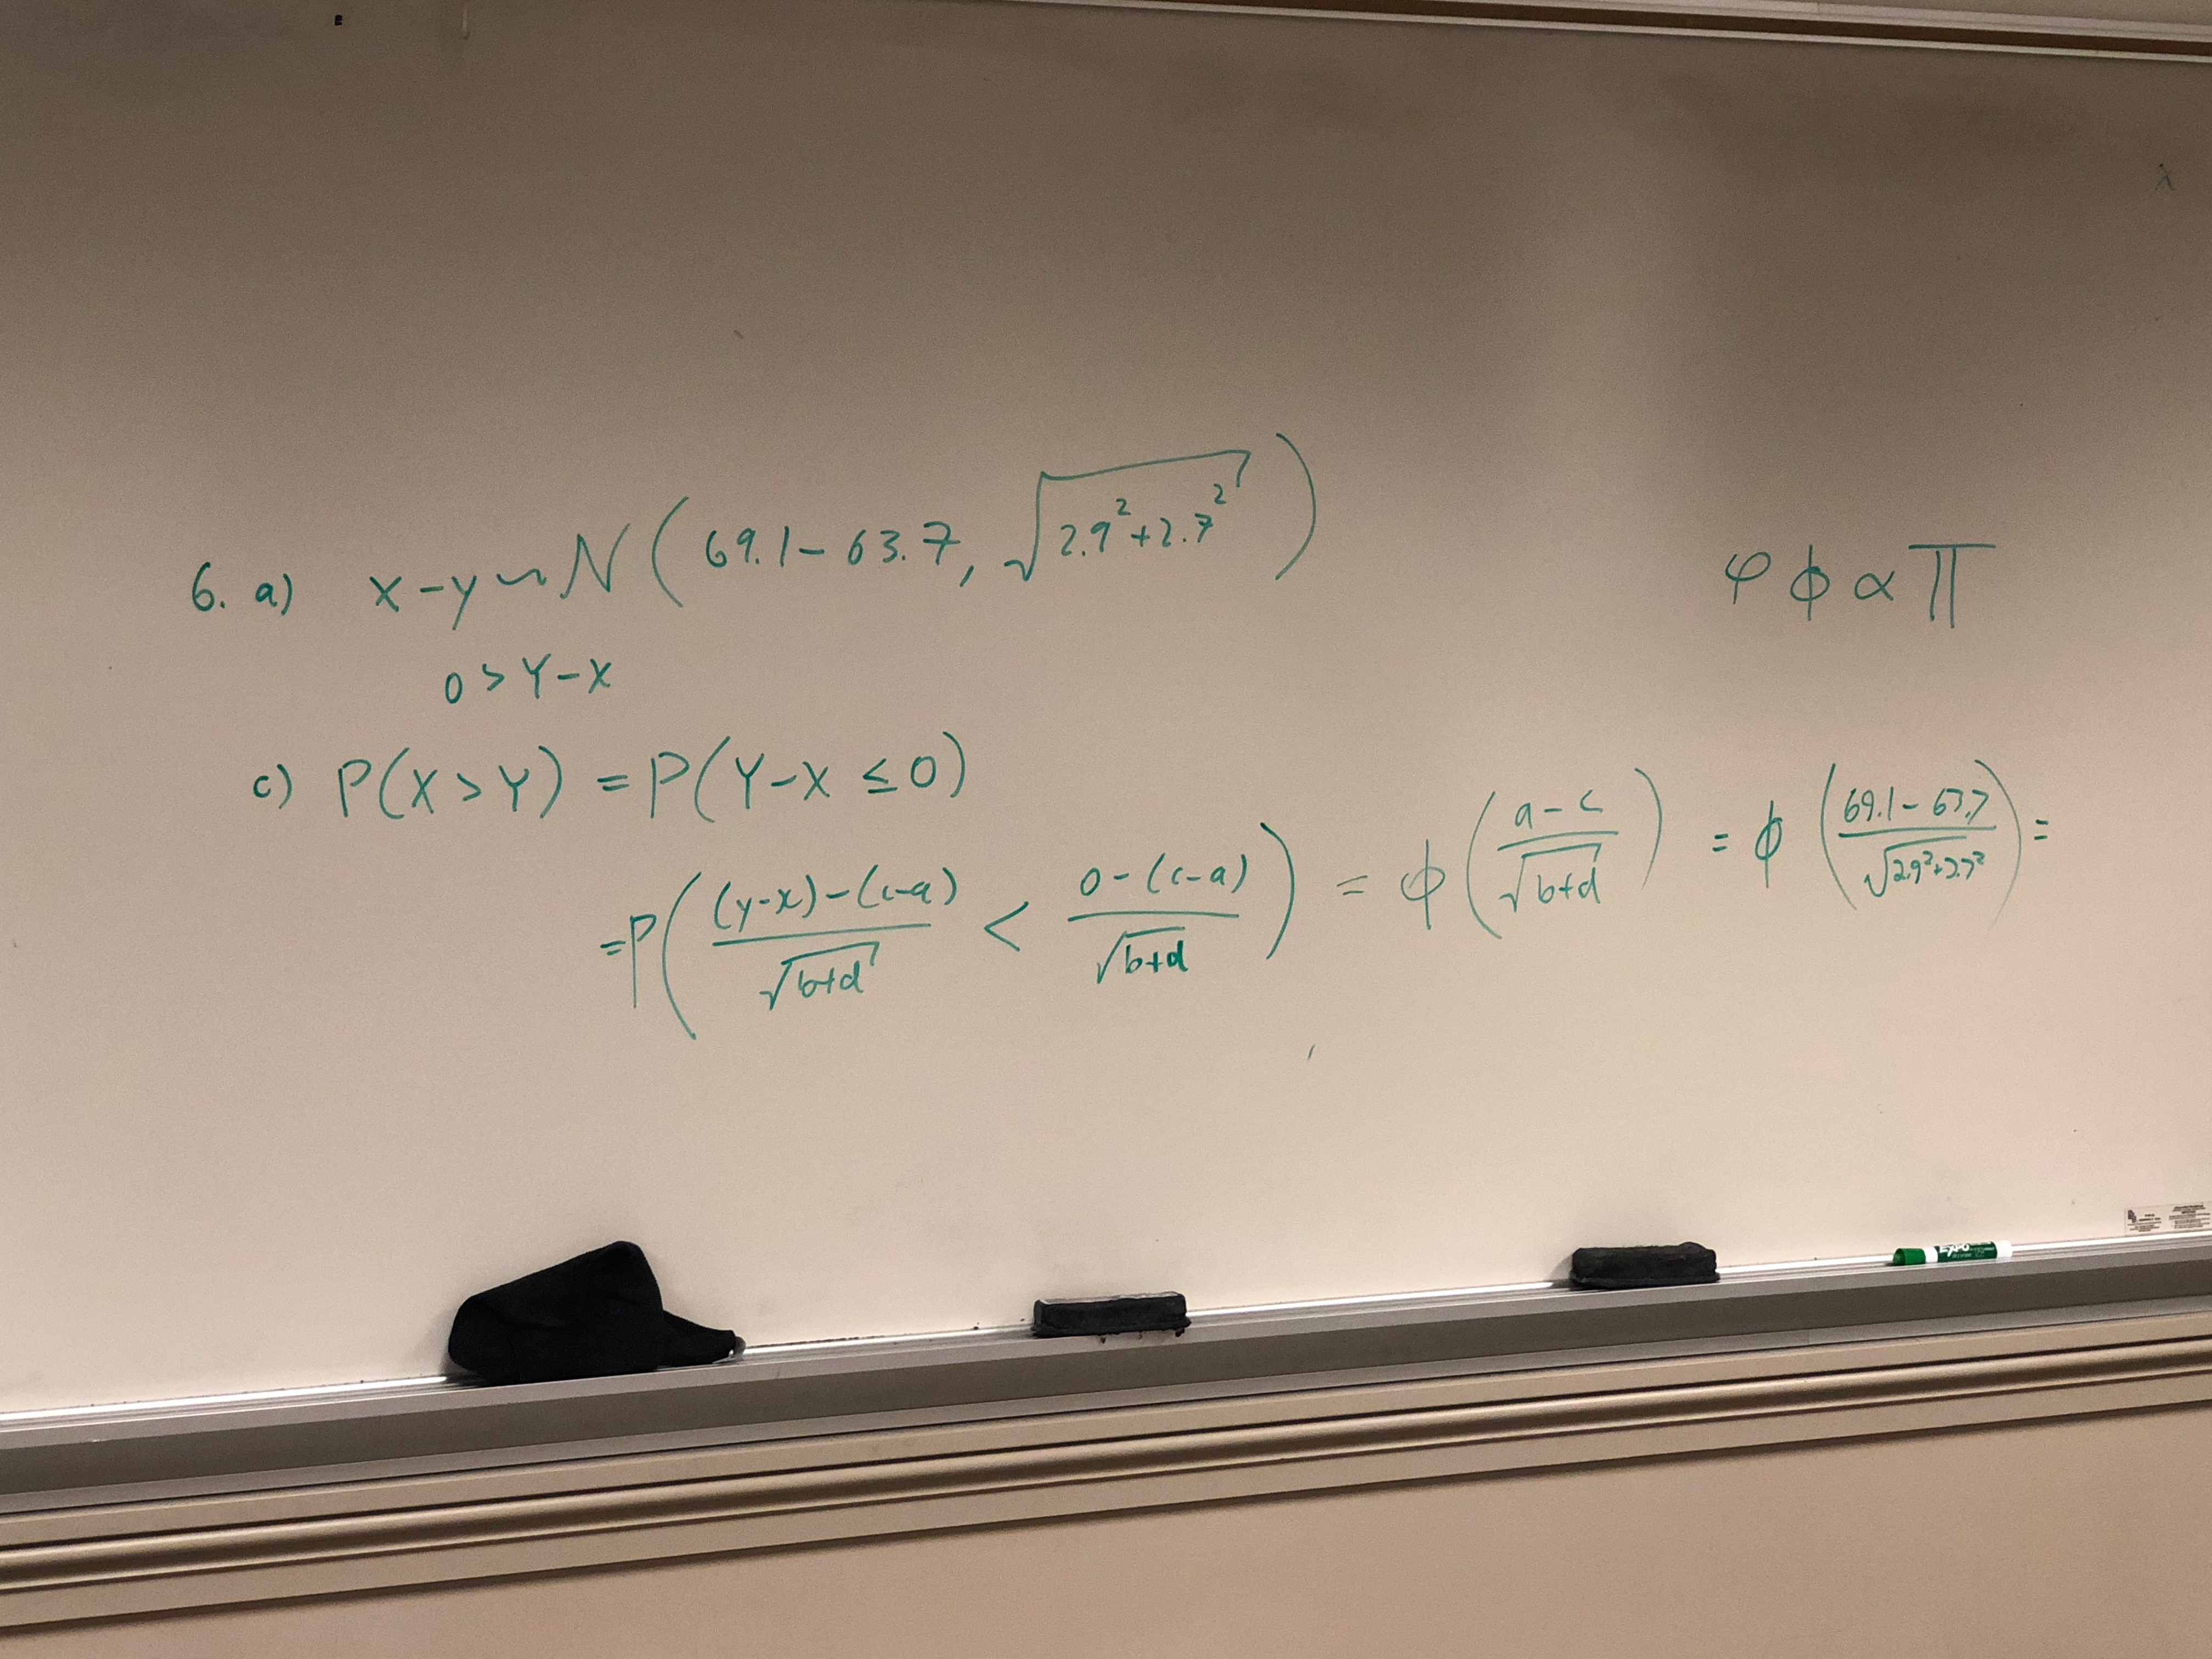 6. a) x-y ~ N(69.1-63.7, √(2.9²+2.7²))
φ ϕ α π
0 > Y-X
c) P(X > Y) = P(Y-X ≤ 0)
=P( ((y-x)-(c-a))/√(b+d) < (0-(c-a))/√(b+d) ) = ϕ( (a-c)/√(b+d) ) = ϕ( (69.1-63.7)/√(2.9²+2.7²) ) =
λ
EXPO